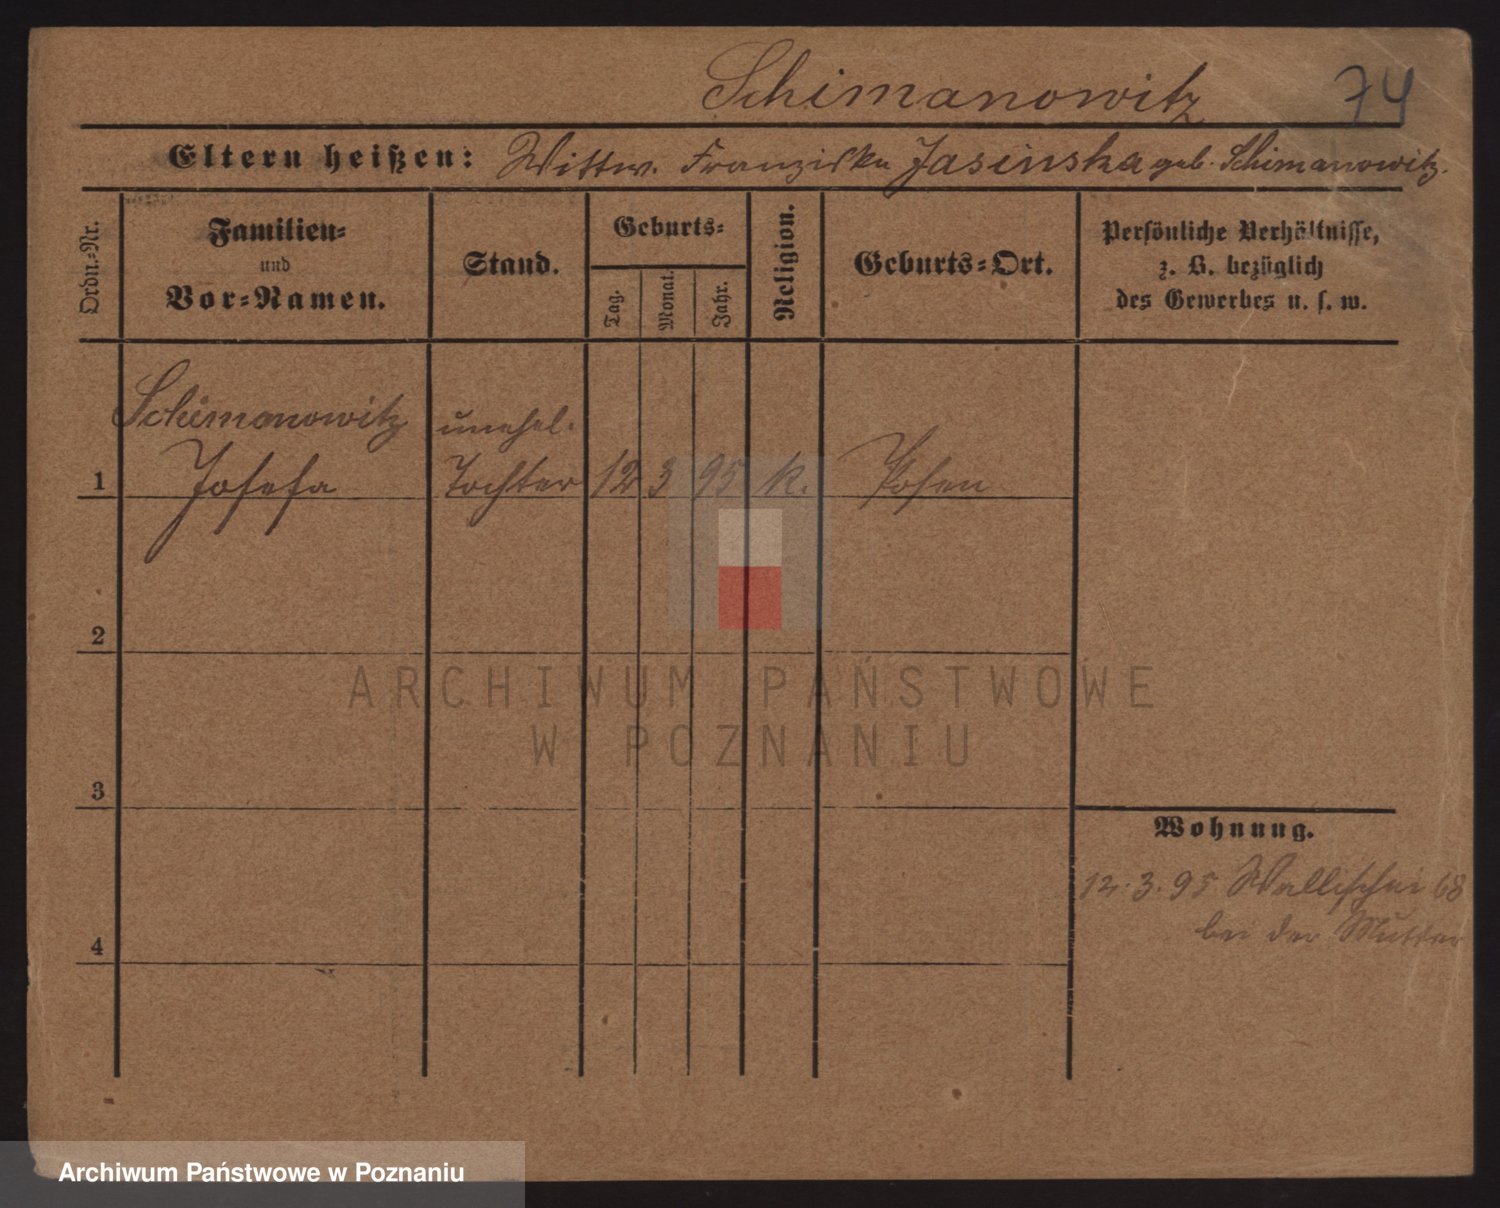 Schimanowitz 74
Eltern heißen: Wittw. Franziska Jasinska geb. Schimanowitz.
Ordn.-Nr.
Familien-
und
Vor-Namen.
Stand.
Geburts-
Tag.
Monat.
Jahr.
Religion.
Geburts-Ort.
Persönliche Verhältnisse,
z. B. bezüglich
des Gewerbes u. s. w.
Schimanowitz unehel.
1 Josefa Tochter 12 3 95 k. Posen
2
3
4
Wohnung.
12.3.95 Wallischei 68
bei der Mutter
ARCHIWUM PAŃSTWOWE
W POZNANIU
Archiwum Państwowe w Poznaniu